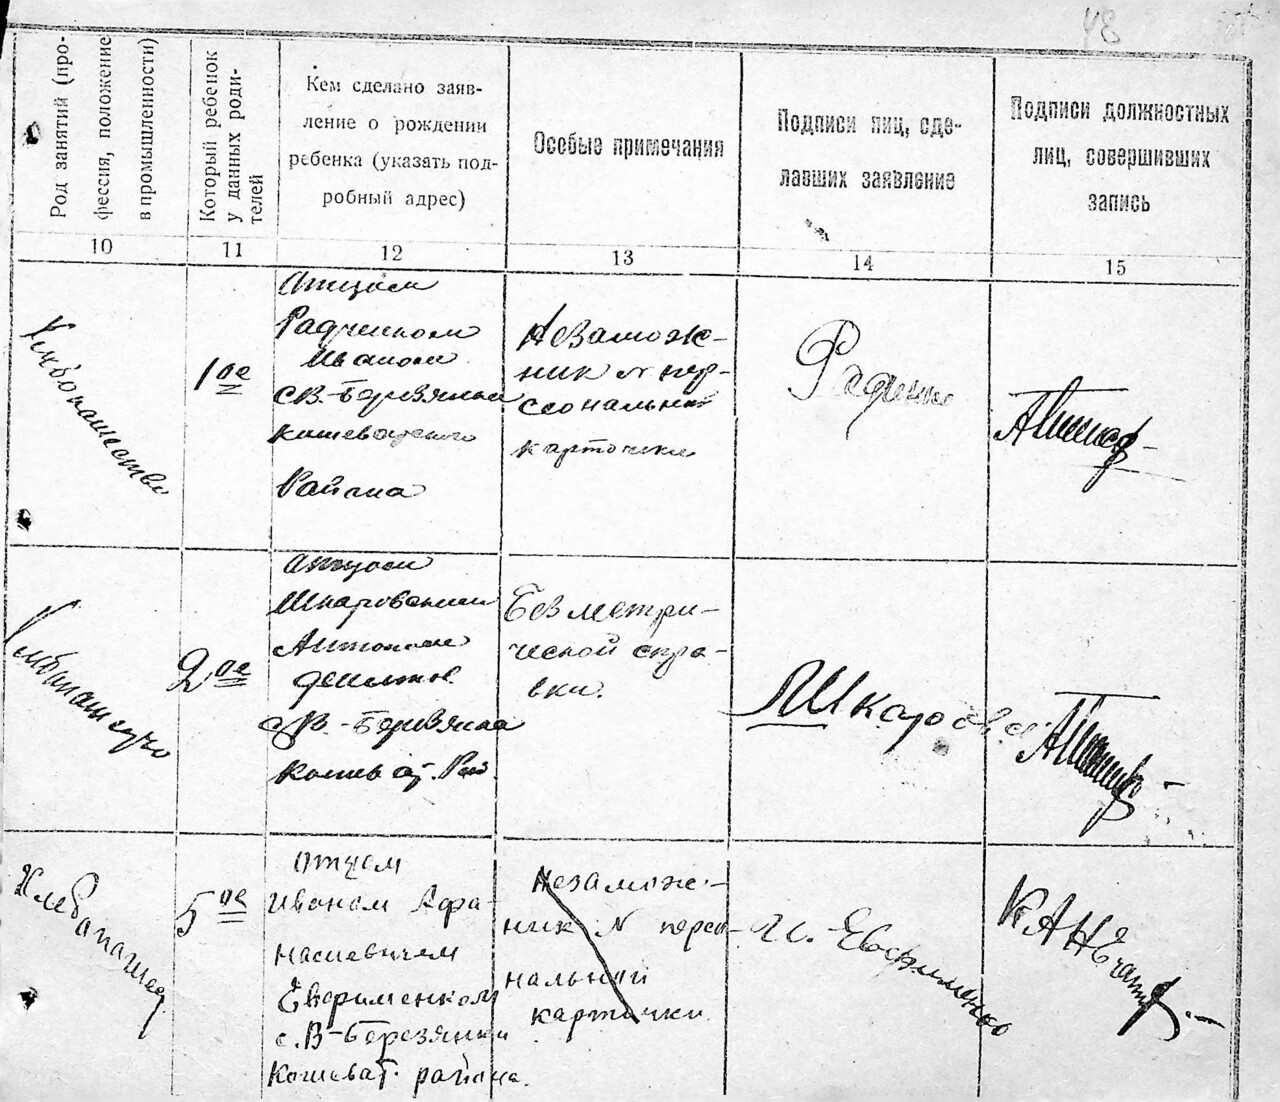 48
Род занятий (про-
фессия, положение
в промышленности)
Который ребенок
у данных роди-
телей
Кем сделано заяв-
ление о рождении
ребенка (указать под-
робный адрес)
Особые примечания
Подписи лиц, сде-
лавших заявление
Подписи должностных
лиц, совершивших
запись
10
11
12
13
14
15
Хлебопашество
1ое
Отцом
Радченком
Иваном
с В.-Березянка
Кошеватского
Района
Незамож-
ник № пер-
сональной
карточки
Радченко
2ое
отцом
Шкаровским
Антоном
с В.-Березянка
Кошеват. Рай.
Без метри-
ческой спра-
вки.
Хлебопашец
5ое
отцем
Иваном Афа-
насиевичем
Евфименком
с. В-Березянки
Кошеват. района.
Незамож-
ник № персо-
нальной
карточки
И. Евфименко